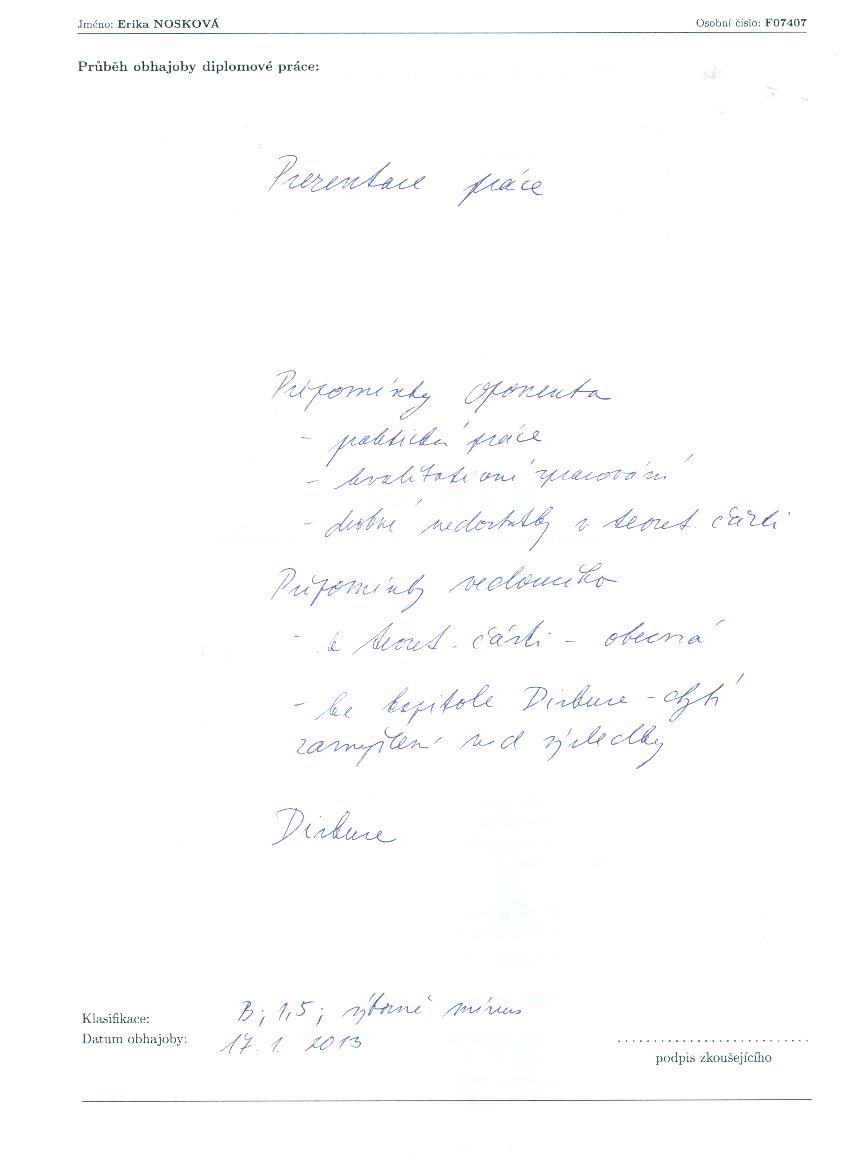 Jméno: Erika NOSKOVÁ
Osobní číslo: F07407
Průběh obhajoby diplomové práce:
Prezentace práce
Připomínky oponenta
- praktická práce
- kvalitativní zpracování
- drobné nedostatky v teoret. části
Připomínky vedoucího
- k teoret. části - obecná
- ke kapitole Diskuse - chybí
zamyšlení nad výsledky
Diskuse
Klasifikace: B; 1,5; výborně mínus
Datum obhajoby: 17. 1. 2013
podpis zkoušejícího